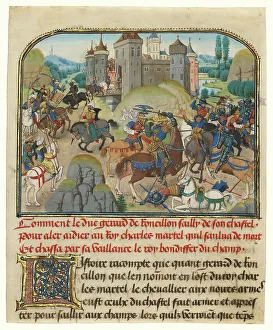 Comment le duc gerard de Ronceillon sailly de son chastel
Pour aler aidier au Roy charles martel qui saulua de mort
Et chassa par sa vaillance le roy bondiffer du champ.
Listoire racompte que quant gerard de
cillon que len nomoit en lost du roy char
les martel le chevallier aux noires armes
eust ceulx du chastel fait armer et apres
ter pour saillir aux champs lors quilz